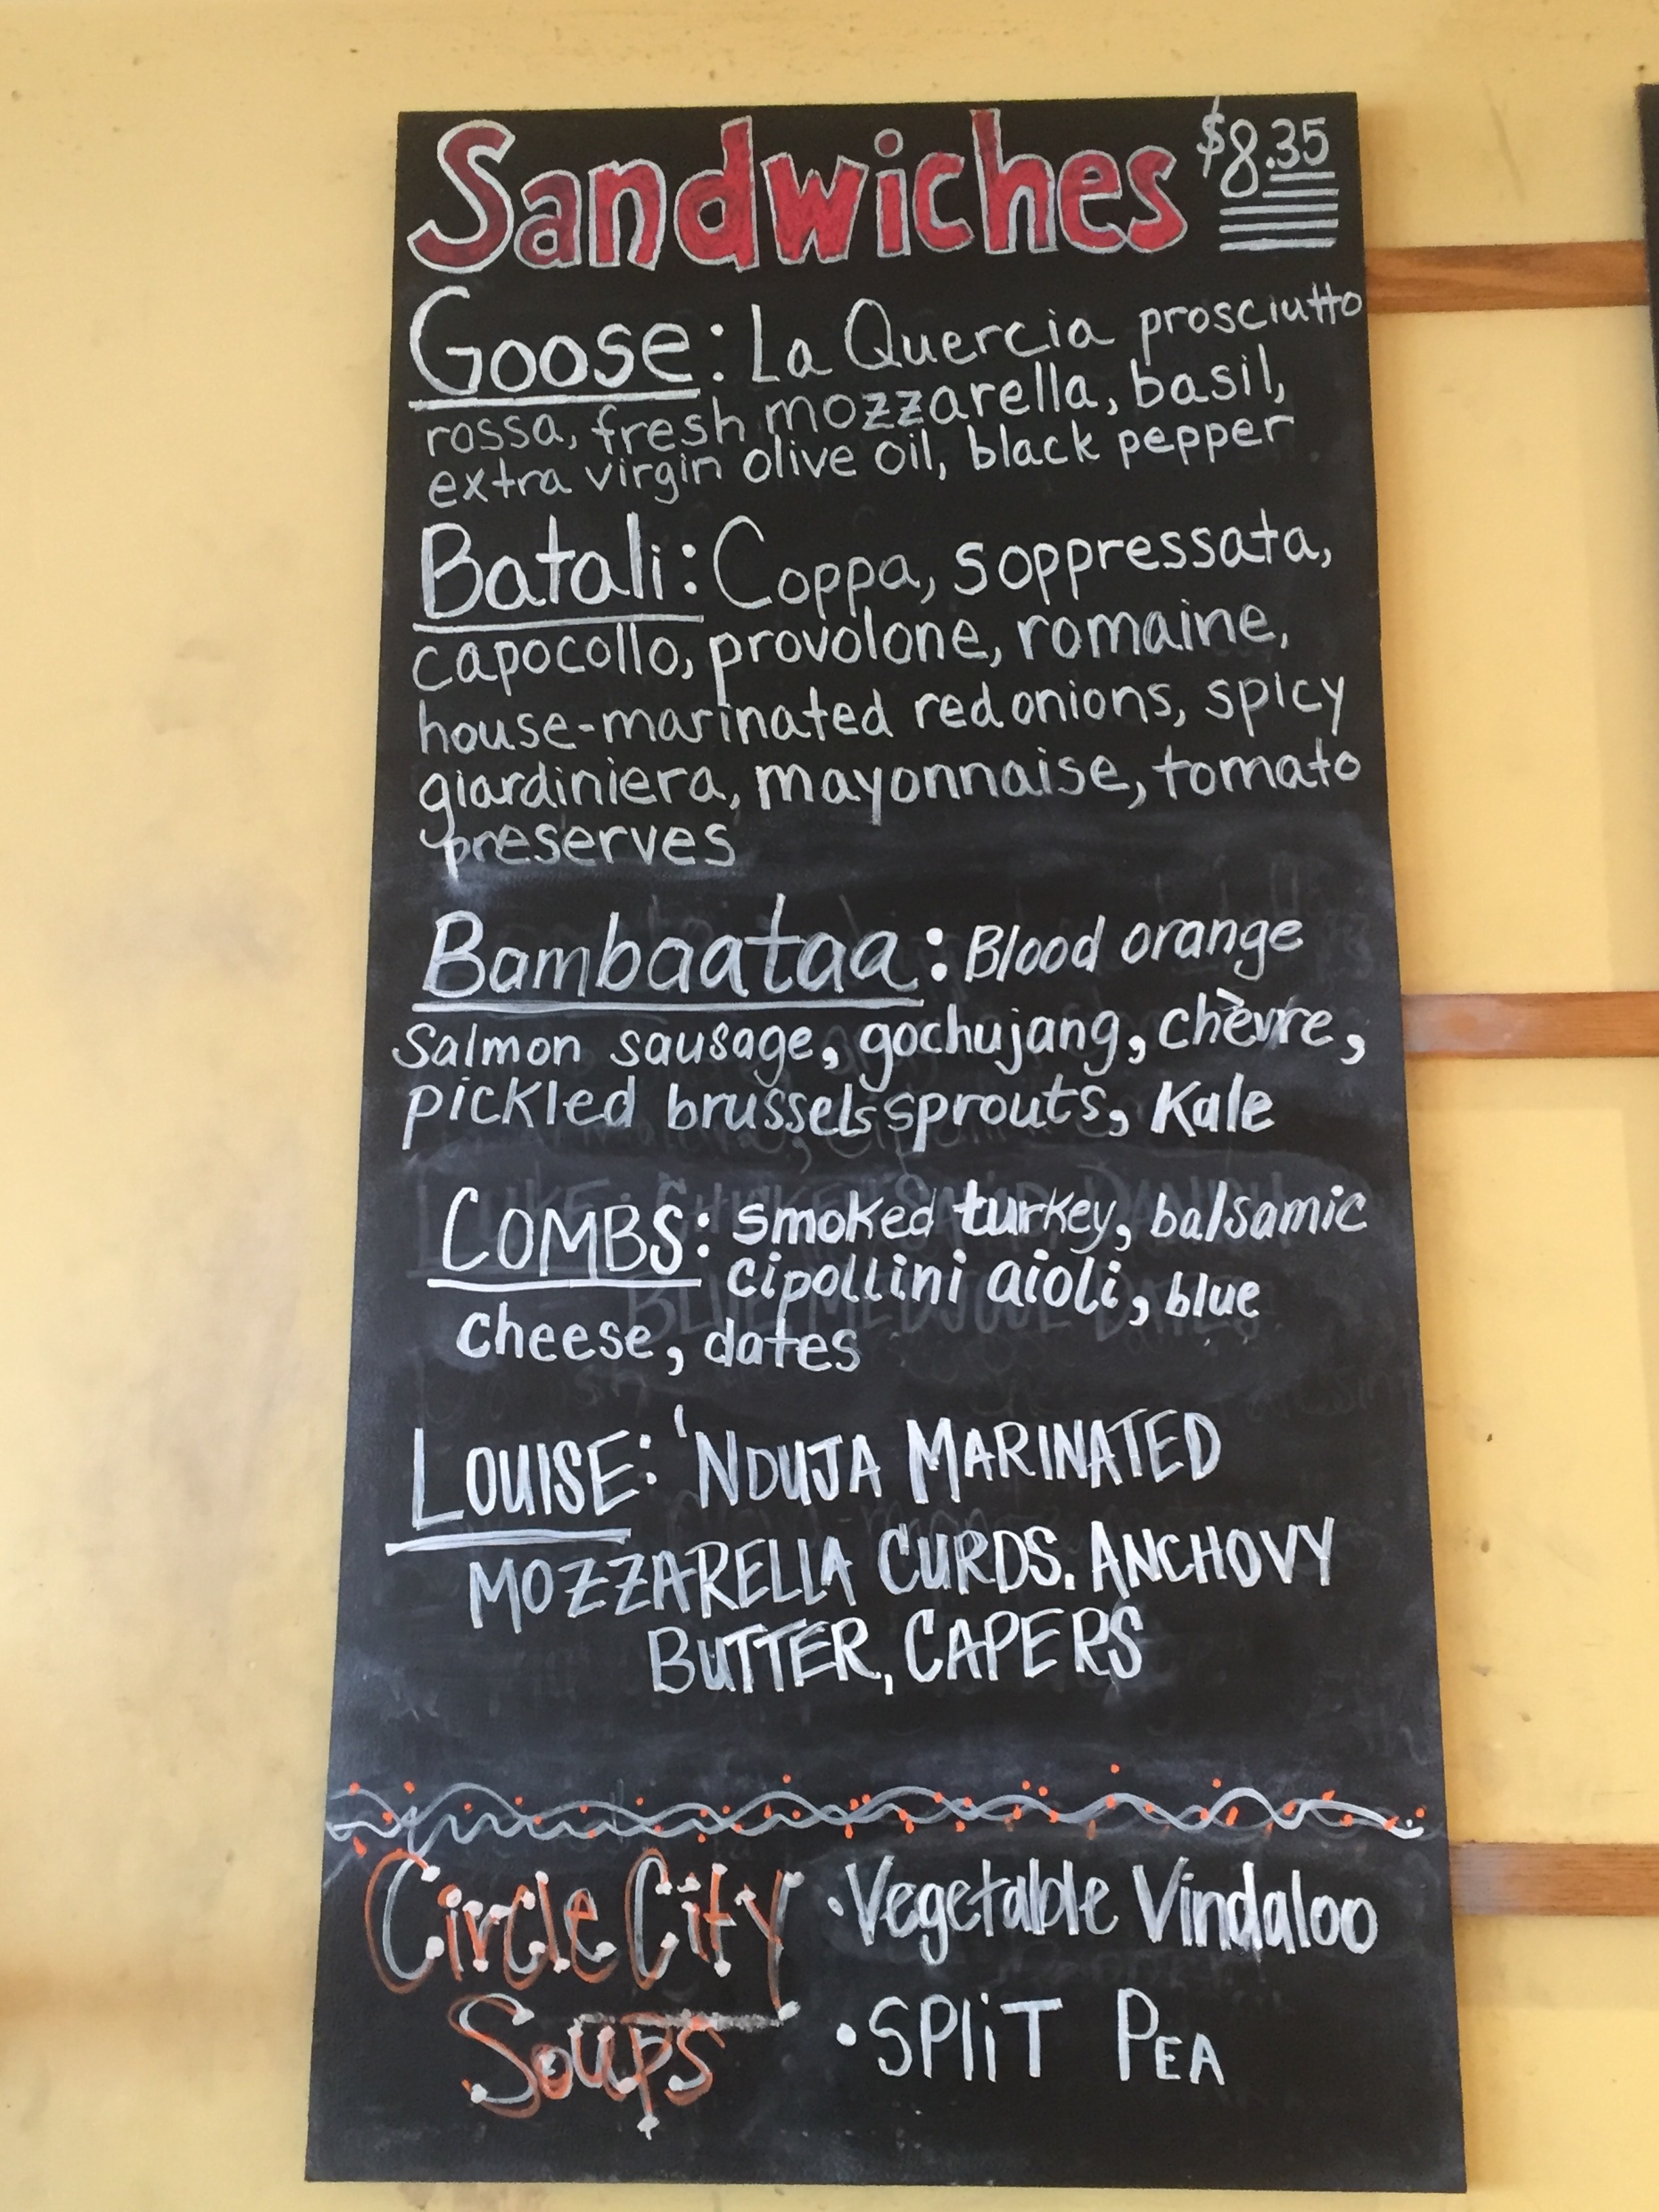 Sandwiches $8.35
Goose: La Quercia prosciutto
rossa, fresh mozzarella, basil,
extra virgin olive oil, black pepper
Batali: Coppa, soppressata,
capocollo, provolone, romaine,
house-marinated red onions, spicy
giardiniera, mayonnaise, tomato
preserves
Bambaataa: Blood orange
Salmon sausage, gochujang, chèvre,
pickled brussels sprouts, Kale
COMBS: smoked turkey, balsamic
cipollini aioli, blue
cheese, dates
LOUISE: 'NDUJA MARINATED
MOZZARELLA CURDS. ANCHOVY
BUTTER, CAPERS
Circle City
Soups
·Vegetable Vindaloo
·SPLiT PEA